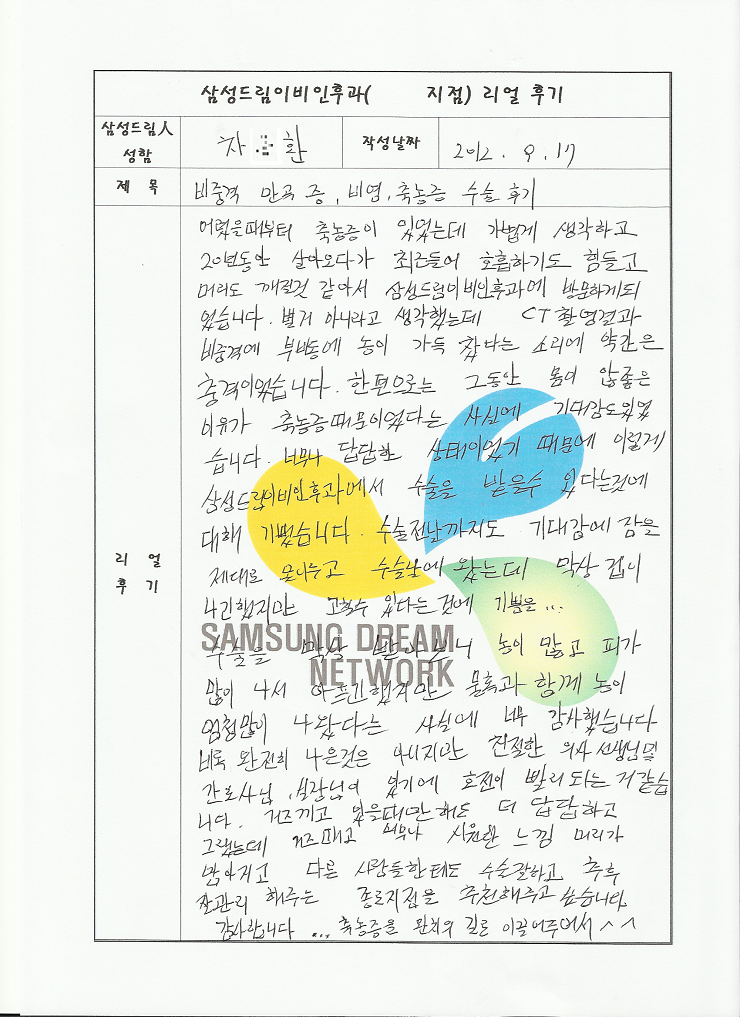 삼성드림이비인후과( 지점) 리얼 후기
삼성드림人 성함
차 환
작성날짜
2012. 9. 17
제 목
비중격 만곡증, 비염, 축농증 수술 후기
리 얼 후 기
어렸을때부터 축농증이 있었는데 가볍게 생각하고
20년동안 살아오다가 최근들어 호흡하기도 힘들고
머리도 깨질것 같아서 삼성드림이비인후과에 방문하게되
었습니다. 별거 아니라고 생각했는데 CT촬영결과
비중격에 부비동에 농이 가득 찼다는 소리에 약간은
충격이었습니다. 한편으로는 그동안 몸이 않좋은
이유가 축농증때문이었다는 사실에 기대감도있었
습니다. 너무나 답답한 상태이었기 때문에 이렇게
삼성드림이비인후과에서 수술을 받을수 있다는것에
대해 기뻤습니다. 수술전날까지도 기대감에 잠을
제대로 못이루고 수술날에 왔는데 막상 겁이
나긴했지만 고칠수 있다는것에 기쁨을...
SAMSUNG DREAM
NETWORK
수술을 막상 받아보니 농이 많고 피가
많이 나서 아프긴했지만 물혹과 함께 농이
엄청많이 나왔다는 사실에 너무 감사했습니다
비록 완전히 나은것은 아니지만 친절한 의사선생님및
간호사님, 실장님이 있기에 호전이 빨리되는거같습
니다. 거즈끼고 있을때만해도 더 답답하고
그랬는데 거즈빼고 너무나 시원한 느낌 머리가
맑아지고 다른 사람들한테도 수술잘하고 추후
잘관리 해주는 종로지점을 추천해주고 싶습니다
감사합니다 ... 축농증을 완치의 길로 이끌어주어서 ^^